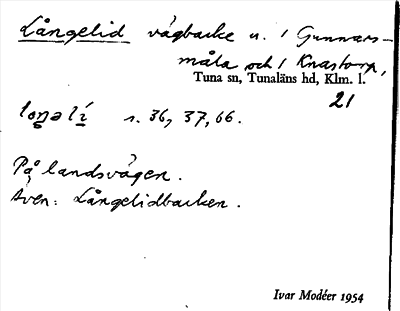 Långelid vägbacke u. 1 Gunnars-
måla och 1 Knastorp,
Tuna sn, Tunaläns hd, Klm. l.
21
loŋəlí s. 36, 37, 66.
På landsvägen.
Även: Långelidbacken.
Ivar Modéer 1954